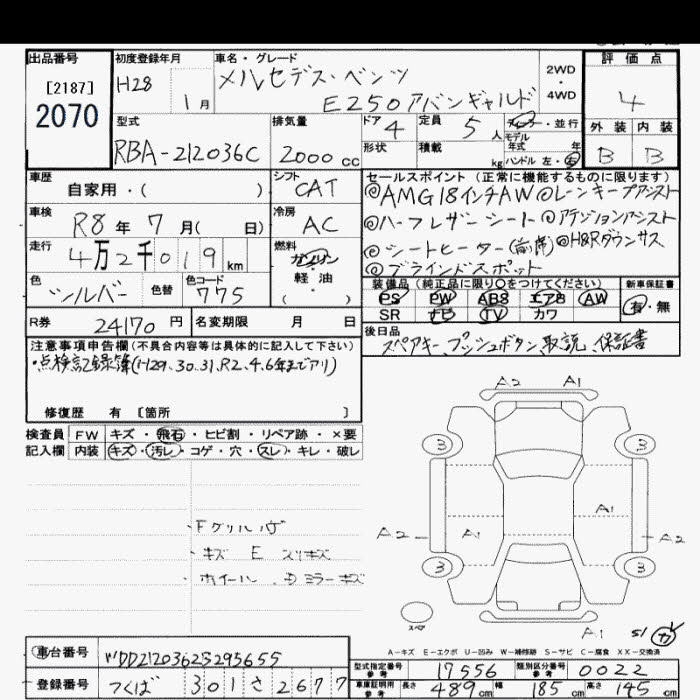 出品番号
[2187]
2070
初度登録年月
H28
1 月
車名・グレード
メルセデス・ベンツ
E250アバンギャルド
2WD
・
4WD
評価点
4
外装 内装
B B
型式
RBA-212036C
排気量
2000 cc
ドア 4
定員 5 人
形状
積載 kg
ディーラー・並行
モデル
年式 年
ハンドル 左・右
車歴
自家用・( )
シフト
CAT
車検
R8 年 7 月( 日)
冷房
AC
走行
4万2千019 km
燃料
ガソリン
・
軽油
( )
色
シルバー
色替
色コード
775
R券 24170 円
名変期限 月 日
セールスポイント (正常に機能するものに限ります)
◎AMG18インチAW ◎レーンキープアシスト
◎ハーフレザーシート ◎アテンションアシスト
◎シートヒーター(前席) ◎H&Rダウンサス
◎ブラインドスポット
装備品 (純正品に限り○をつけてください) 新車保証書
PS PW ABS エアB AW
SR ナビ TV カワ
有・無
後日品
スペアキー、プッシュボタン、取説、保証書
注意事項申告欄(不具合内容等は具体的に記入して下さい)
・点検記録簿(H29.30.31,R2.4.6年まで有り)
修復歴 有 [箇所 ]
検査員 FW キズ・飛石・ヒビ割・リペア跡・×要
記入欄 内装 キズ・汚レ・コゲ・穴・スレ・キレ・破レ
・Fグリル
・キズ E スリキズ
・ホイール、Dミラーキズ
A2 A1
3 3
A1
A2 A1 A2
3 3
スペア
A1
A－キズ E－エクボ U－凹み W－補修跡 S－サビ C－腐食 XX－交換済
車台番号
WDD2120362B295655
登録番号
つくば 301 さ 2677
型式指定番号
参考
17556
類別区分番号
参考
0022
車庫証明用
参考
長さ 489 cm 幅 185 cm 高さ 145 cm